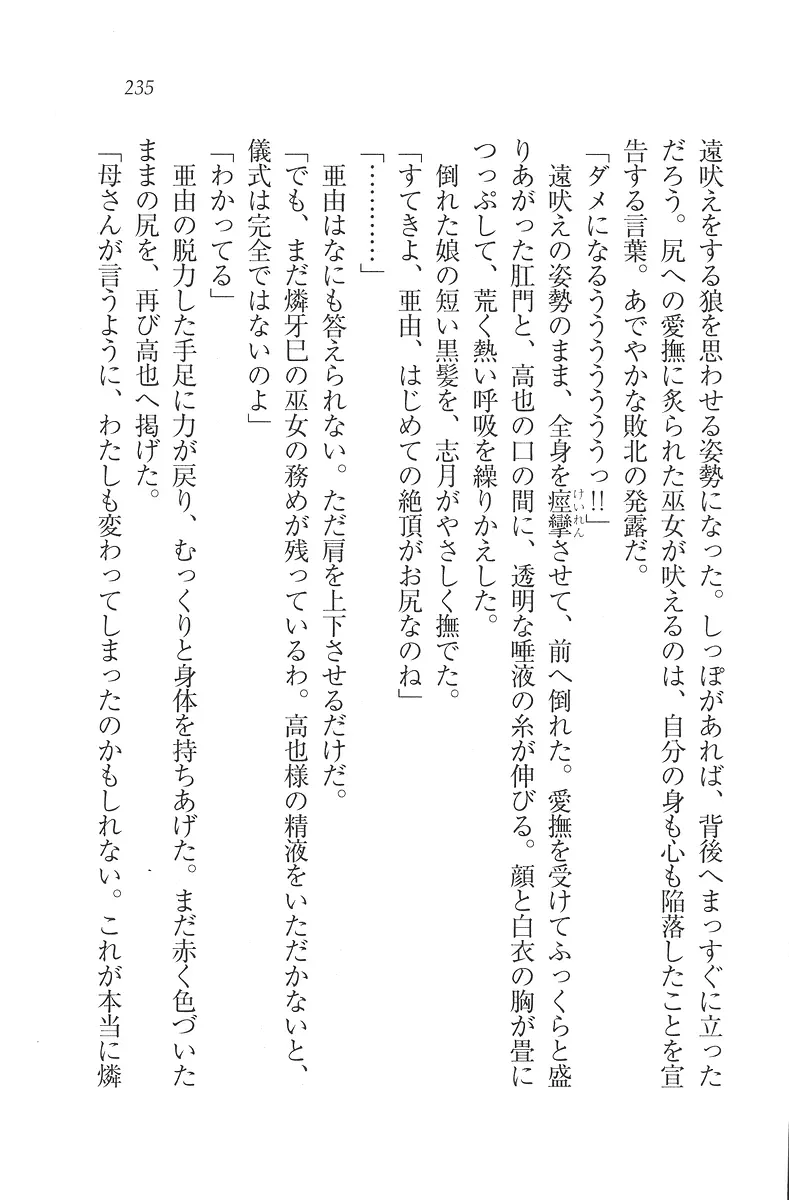 235
遠吠えをする狼を思わせる姿勢になった。しっぽがあれば、背後へまっすぐに立った
だろう。尻への愛撫に炙られた巫女が吠えるのは、自分の身も心も陥落したことを宣
告する言葉。あでやかな敗北の発露だ。
「ダメになるうううううううっ!!」
遠吠えの姿勢のまま、全身を痙攣けいれんさせて、前へ倒れた。愛撫を受けてふっくらと盛
りあがった肛門と、高也の口の間に、透明な唾液の糸が伸びる。顔と白衣の胸が畳に
つっぷして、荒く熱い呼吸を繰りかえした。
倒れた娘の短い黒髪を、志月がやさしく撫でた。
「すてきよ、亜由、はじめての絶頂がお尻なのね」
「…………」
亜由はなにも答えられない。ただ肩を上下させるだけだ。
「でも、まだ燐牙巳の巫女の務めが残っているわ。高也様の精液をいただかないと、
儀式は完全ではないのよ」
「わかってる」
亜由の脱力した手足に力が戻り、むっくりと身体を持ちあげた。まだ赤く色づいた
ままの尻を、再び高也へ掲げた。
「母さんが言うように、わたしも変わってしまったのかもしれない。これが本当に燐